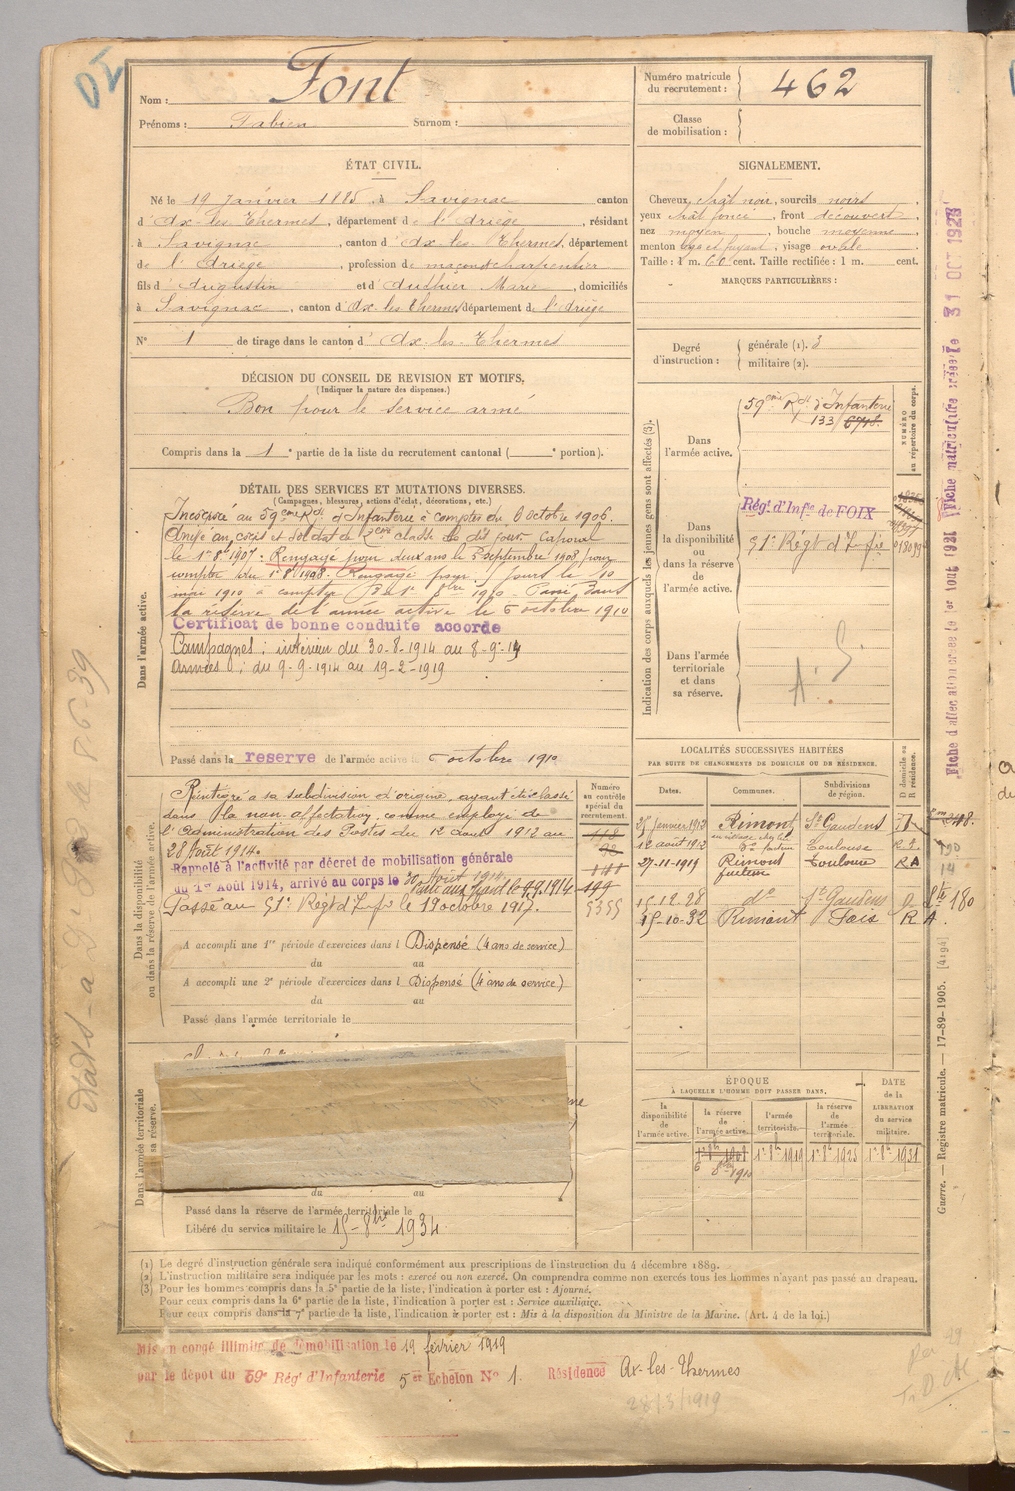 Nom : Font
Prénoms : Fabien Surnom :
ÉTAT CIVIL.
Né le 19 Janvier 1885, à Savignac canton
d'Ax-les-Thermes, département de l'Ariège, résidant
à Savignac, canton d'Ax-les-Thermes, département
de l'Ariège, profession de maçon charpentier
fils d'Augustin et d'Authier Marie, domiciliés
à Savignac, canton d'Ax-les-Thermes département de l'Ariège
N° 1 de tirage dans le canton d'Ax-les-Thermes
DÉCISION DU CONSEIL DE REVISION ET MOTIFS.
(Indiquer la nature des dispenses.)
Bon pour le service armé
Compris dans la 1e partie de la liste du recrutement cantonal ( e portion).
DÉTAIL DES SERVICES ET MUTATIONS DIVERSES.
(Campagnes, blessures, actions d'éclat, décorations, etc.)
Dans l'armée active.
Incorporé au 59ème Rgt d'Infanterie à compter du 6 Octobre 1906.
Arrivé au corps et soldat de 2ème classe le dit jour. Caporal
le 1er 8bre 1907. Rengagé pour deux ans le 5 septembre 1908 pour
compter du 1er 8bre 1908. Rengagé pour jours le 10
mai 1910 à compter du 1er 8bre 1910. Passé dans
la réserve de l'armée active le 6 octobre 1910
Certificat de bonne conduite accordé
Campagnes : intérieur du 30-8-1914 au 8-9-14
Armées : du 9-9-1914 au 19-2-1919
Passé dans la reserve de l'armée active le 6 octobre 1910
Dans la disponibilité
ou dans la réserve de l'armée active.
Numéro
au contrôle
spécial du
recrutement.
Réintégré à sa subdivision d'origine, ayant été classé
dans la non affectation comme employé de
l'Administration des Postes du 12 août 1912 au
28 Août 1914.
Rappelé à l'activité par décret de mobilisation générale
du 1er Août 1914, arrivé au corps le 30 Août 1914.
Parti aux Armées le 9.9.1914
Passé au 51e Régt d'Infie le 19 octobre 1917.
5355
A accompli une 1re période d'exercices dans l Dispensé (4 ans de service)
du au
A accompli une 2e période d'exercices dans l Dispensé (4 ans de service)
du au
Passé dans l'armée territoriale le
Dans l'armée territoriale
sa réserve.
du au
Passé dans la réserve de l'armée territoriale le
Libéré du service militaire le 15-8bre 1934
Numéro matricule
du recrutement : 462
Classe
de mobilisation :
SIGNALEMENT.
Cheveux chât noir, sourcils noirs,
yeux chât foncé, front découvert,
nez moyen, bouche moyenne,
menton et fuyant, visage ovale.
Taille : 1 m. 60 cent. Taille rectifiée : 1 m. cent.
MARQUES PARTICULIÈRES :
Degré
d'instruction :
générale (1). 3
militaire (2).
Indication des corps auxquels les jeunes gens sont affectés (3).
NUMÉRO
au répertoire du corps.
Dans
l'armée active.
59ème Rgt d'Infanterie
133
Dans
la disponibilité
ou
dans la réserve
de
l'armée active.
Rég. d'Infie de FOIX
51e Régt d'Infie
Dans l'armée
territoriale
et dans
sa réserve.
A. S.
LOCALITÉS SUCCESSIVES HABITÉES
PAR SUITE DE CHANGEMENTS DE DOMICILE OU DE RÉSIDENCE.
Dates. Communes. Subdivisions
de région. D domicile ou
R résidence.
25 Janvier 1912 Rimont St Gaudens
12 août 1912 do facteur Toulouse R.
27-11-1919 Rimont Toulouse R A
facteur
15-12-28 do St Gaudens
15-10-32 Rimont Foix R A
ÉPOQUE
À LAQUELLE L'HOMME DOIT PASSER DANS.
DATE
de la
LIBÉRATION
du service
militaire.
la
disponibilité
de
l'armée active.
la réserve
de
l'armée active.
l'armée
territoriale.
la réserve
de
l'armée
territoriale.
1er 8bre 1908
6 8bre 1910
1er 8bre 1919 1er 8bre 1925 1er 8bre 1931
(1) Le degré d'instruction générale sera indiqué conformément aux prescriptions de l'instruction du 4 décembre 1889.
(2) L'instruction militaire sera indiquée par les mots : exercé ou non exercé. On comprendra comme non exercés tous les hommes n'ayant pas passé au drapeau.
(3) Pour les hommes compris dans la 5e partie de la liste, l'indication à porter est : Ajourné.
Pour ceux compris dans la 6e partie de la liste, l'indication à porter est : Service auxiliaire.
Pour ceux compris dans la 7e partie de la liste, l'indication à porter est : Mis à la disposition du Ministre de la Marine. (Art. 4 de la loi.)
Mis en congé illimité de démobilisation le 19 février 1919
par le dépôt du 59e Rég' d'Infanterie 5er Echelon N° 1. Résidence Ax-les-Thermes
28/3/1919
Fiche matriculaire créée le 31 OCT 1923
Guerre. — Registre matricule. — 17-89-1905. [4194]